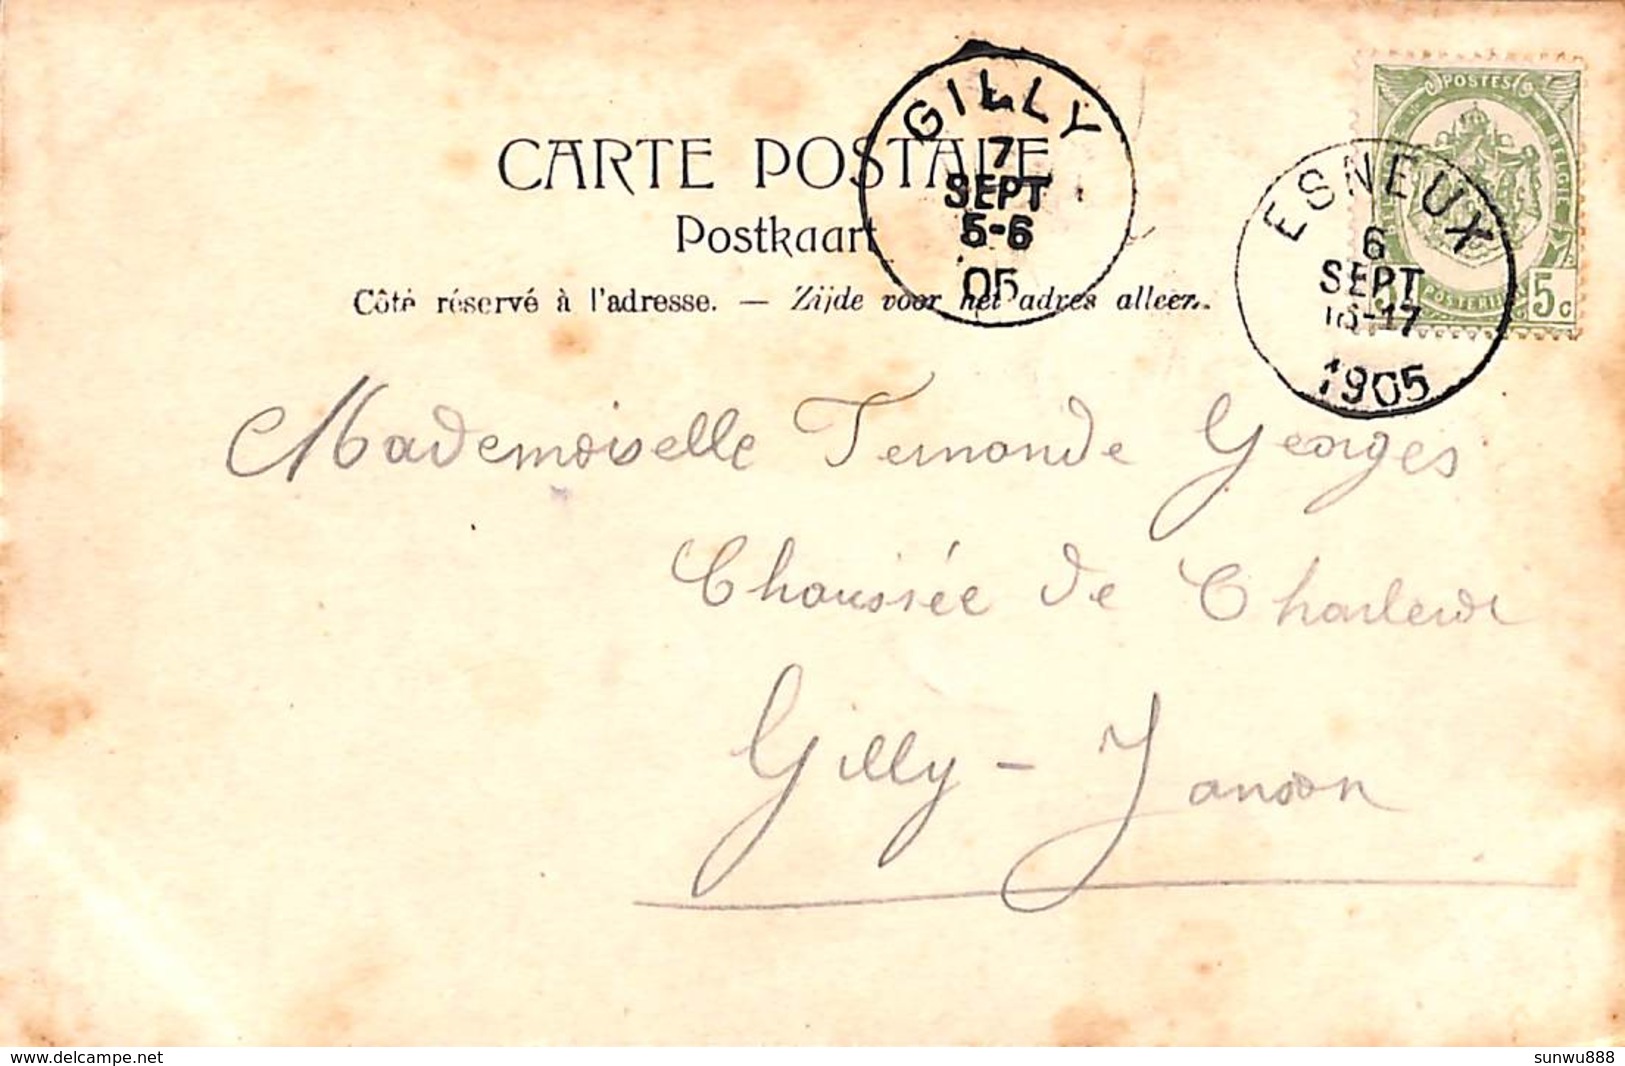 CARTE POSTALE
Postkaart
Côté réservé à l'adresse. — Zijde voor het adres alleen.
GILLY
7
SEPT
5-6
05
POSTES
BELGIE
5c
ESNEUX
6
SEPT
16-17
1905
Mademoiselle Fernande Georges
Chaussée de Charleroi
Gilly - Janson
www.delcampe.net
sunwu888